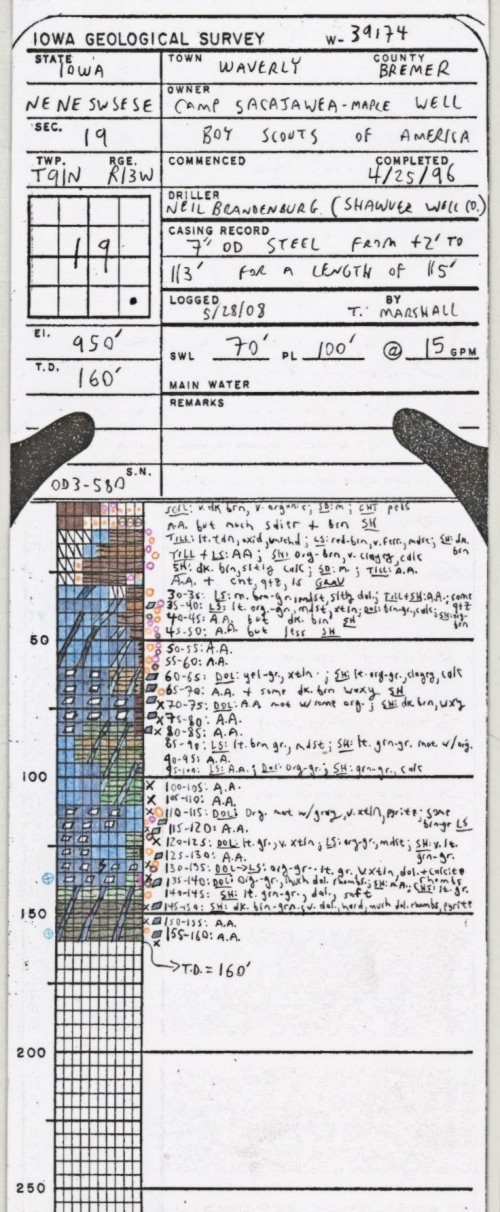 IOWA GEOLOGICAL SURVEY W- 39174
STATE IOWA TOWN WAVERLY COUNTY BREMER
NE NE SW SE SE OWNER CAMP SACAJAWEA-MAPLE WELL
SEC. 19 BOY SCOUTS OF AMERICA
TWP. T91N RGE. R13W COMMENCED COMPLETED 4/25/96
DRILLER NEIL BRANDENBURG (SHAWVER WELL CO.)
CASING RECORD 7" OD STEEL FROM +2' TO
19
113' FOR A LENGTH OF 115'
LOGGED 5/28/08 BY T. MARSHALL
El. 950'
SWL 70' PL 100' @ 15 GPM
T.D. 160'
MAIN WATER
REMARKS
S.N.
OD3-580
SOIL: v. dk brn, v. organic; SD: m; CHT pebs
A.A. but much sdier + brn SH
TILL: lt. tan, oxid, unlchd; LS: red-brn, v. ferr., mdst; SH: dk. brn
TILL + LS: AA; SH: org-brn, v. clayey, calc
SH: dk. brn, slty calc; SD: m; TILL: A.A.
A.A. + cht, qtz, ls GRAV
30-35: LS: m. brn-gr, mdst, slty dol; TILL+SH: A.A.; some qtz
35-40: LS: lt. org-gr, mdst, xtln; DOL: brn-gr, calc; SH: org-brn
40-45: A.A. but dk. brn SH
45-50: A.A. but less SH
50
50-55: A.A.
55-60: A.A.
60-65: DOL: yel-gr, xtln; SH: lt. org-gr, clayey, calc
65-70: A.A. + some dk. brn waxy SH
70-75: DOL: A.A. mot w/some org.; SH: dk. brn, wxy
75-80: A.A.
80-85: A.A.
85-90: LS: lt. brn gr., mdst; SH: lt. grn-gr. mot w/org.
90-95: A.A.
95-100: LS: A.A.; DOL: org-gr; SH: grn-gr, calc
100
100-105: A.A.
105-110: A.A.
110-115: DOL: Org. mot w/gray, v. xtln, pyrite; some brn-gr LS
115-120: A.A.
120-125: DOL: lt. gr., v. xtln; LS: org-gr, mdst; SH: v. lt. grn-gr.
125-130: A.A.
130-135: DOL→LS: org-gr--lt. gr, vxtln, dol. + calcite rhombs
135-140: DOL: Org-gr., much dol. rhombs; SH: A.A.; CHT: lt. gr.
140-145: SH: lt. grn-gr., dol., soft
145-150: SH: dk. bin-grn, v. dol, hard, much dol. rhombs, pyrite
150
150-155: A.A.
155-160: A.A.
T.D. = 160'
200
250